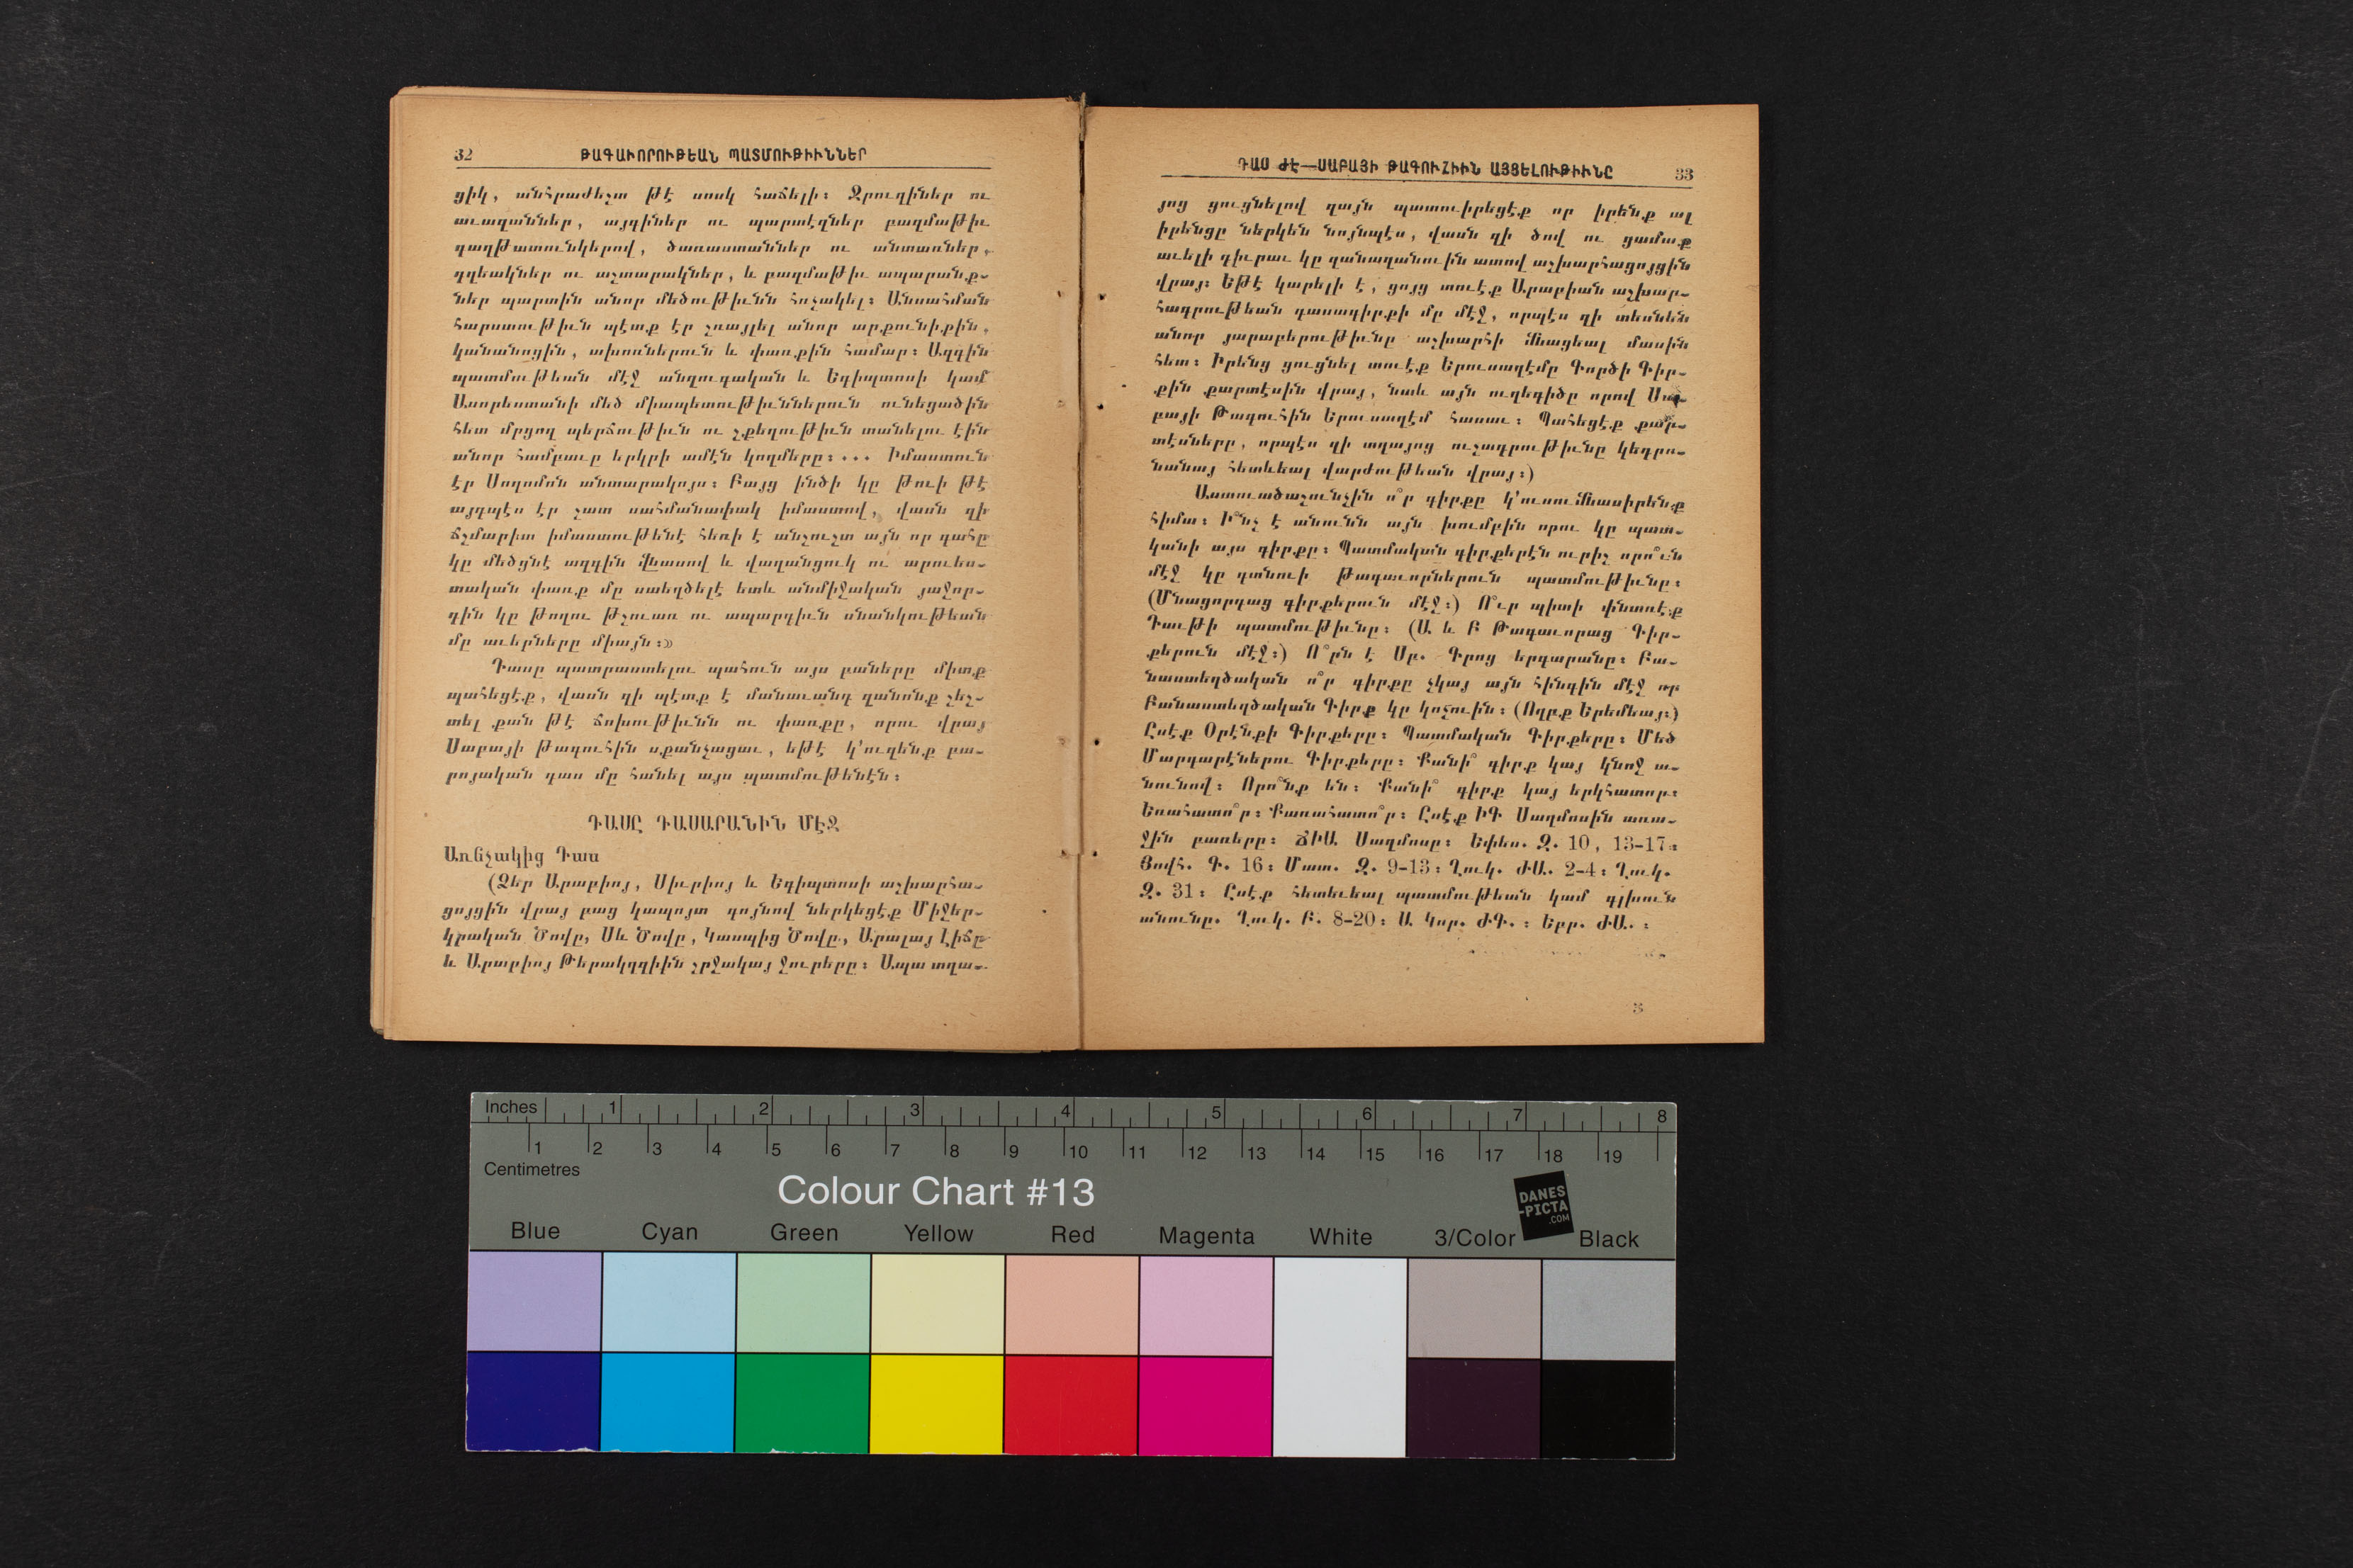 32 ԹԱԳԱՒՈՐՈՒԹԵԱՆ ՊԱՏՄՈՒԹԻՒՆՆԵՐ
ցիկ, անհրաժեշտ թէ սոսկ հաճելի։ Ջրուղիներ ու
աւազաններ, այգիներ ու պարտէզներ բազմաթիւ
գաղթատունկերով, ծառաստաններ ու անտառներ,
դղեակներ ու աշտարակներ, և բազմաթիւ ապարանք-
ներ պարտին անոր մեծութիւնն հռչակել։ Անսահման
հարստութիւն պէտք էր շռայլել անոր արքունիքին,
կանանոցին, ախոռներուն և փառքին համար։ Ազգին
պատմութեան մէջ անզուգական և Եգիպտոսի կամ
Ասորեստանի մեծ միապետութիւններուն ունեցածին
հետ մրցող պերճութիւն ու շքեղութիւն տանելու էին
անոր համբաւը երկրի ամէն կողմերը։... Իմաստուն
էր Սողոմոն անտարակոյս։ Բայց ինծի կը թուի թէ
այդպէս էր շատ սահմանափակ իմաստով, վասն զի
ճշմարիտ իմաստութենէ հեռի է անշուշտ այն որ գահը
կը մեծցնէ ազգին վնասով և վաղանցուկ ու արուես-
տական փառք մը ստեղծելէ ետև անմիջական յաջոր-
դին կը թողու թշուառ ու ապարդիւն սնանկութեան
մը աւերները միայն։»
Դասը պատրաստելու պահուն այս բաները միտք
պահեցէք, վասն զի պէտք է մանաւանդ զանոնք շեշ-
տել քան թէ ճոխութիւնն ու փառքը, որու վրայ
Սաբայի թագուհին սքանչացաւ, եթէ կ'ուզենք բա-
րոյական դաս մը հանել այս պատմութենէն։
ԴԱՍԸ ԴԱՍԱՐԱՆԻՆ ՄԷՋ
Առնչակից Դաս
(Ձեր Արաբիոյ, Սիւրիոյ և Եգիպտոսի աշխարհա-
ցոյցին վրայ բաց կապոյտ գոյնով ներկեցէք Միջեր-
կրական Ծովը, Սև Ծովը, Կասպից Ծովը, Արալայ Լիճը
և Արաբիոյ Թերակղզիին շրջակայ ջուրերը։ Ապա տղա-
ԴԱՍ ԺԷ—ՍԱԲԱՅԻ ԹԱԳՈՒՀԻԻՆ ԱՅՑԵԼՈՒԹԻՒՆԸ 33
յոց ցուցնելով զայն պատուիրեցէք որ իրենք ալ
իրենցը ներկեն նոյնպէս, վասն զի ծով ու ցամաք
աւելի դիւրաւ կը զանազանուին ատով աշխարհացոյցին
վրայ։ Եթէ կարելի է, ցոյց տուէք Արաբիան աշխար-
հագրութեան դասագիրքի մը մէջ, որպէս զի տեսնեն
անոր յարաբերութիւնը աշխարհի մնացեալ մասին
հետ։ Իրենց ցուցնել տուէք Երուսաղէմը Գործի Գիր-
քին քարտէսին վրայ, նաև այն ուղեգիծը որով Սա-
բայի Թագուհին Երուսաղէմ հասաւ։ Պահեցէք քար-
տէսները, որպէս զի տղայոց ուշադրութիւնը կեդրո-
նանայ հետևեալ վարժութեան վրայ։)
Աստուածաշունչին ո՞ր գիրքը կ'ուսումնասիրենք
հիմա։ Ի՞նչ է անունն այն խումբին որու կը պատ-
կանի այս գիրքը։ Պատմական գիրքերէն ուրիշ որո՞ւն
մէջ կը գտնուի Թագաւորներուն պատմութիւնը։
(Մնացորդաց գիրքերուն մէջ։) Ո՞ւր պիտի փնտռէք
Դաւթի պատմութիւնը։ (Ա և Բ Թագաւորաց Գիր-
քերուն մէջ։) Ո՞րն է Սբ. Գրոց երգարանը։ Բա-
նաստեղծական ո՞ր գիրքը չկայ այն հինգին մէջ որ
Բանաստեղծական Գիրք կը կոչուին։ (Ողբք Երեմեայ։)
Ըսէք Օրէնքի Գիրքերը։ Պատմական Գիրքերը։ Մեծ
Մարգարէներու Գիրքերը։ Քանի՞ գիրք կայ կնոջ ա-
նունով։ Որո՞նք են։ Քանի՞ գիրք կայ երկհատոր։
Եռահատո՞ր։ Քառահատո՞ր։ Ըսէք ԻԳ Սաղմոսին առա-
ջին բառերը։ ՃԻԱ Սաղմոսը։ Եփես. Զ. 10, 13-17։
Յովհ. Գ. 16։ Մատ. Զ. 9-13։ Ղուկ. ԺԱ. 2-4։ Ղուկ.
Զ. 31։ Ըսէք հետեւեալ պատմութեան կամ գլխուն
անունը. Ղուկ. Բ. 8-20։ Ա Կոր. ԺԳ.։ Եբր. ԺԱ.։
3
Inches 1 2 3 4 5 6 7 8
1 2 3 4 5 6 7 8 9 10 11 12 13 14 15 16 17 18 19
Centimetres
Colour Chart #13
DANES
-PICTA
.COM
Blue Cyan Green Yellow Red Magenta White 3/Color Black